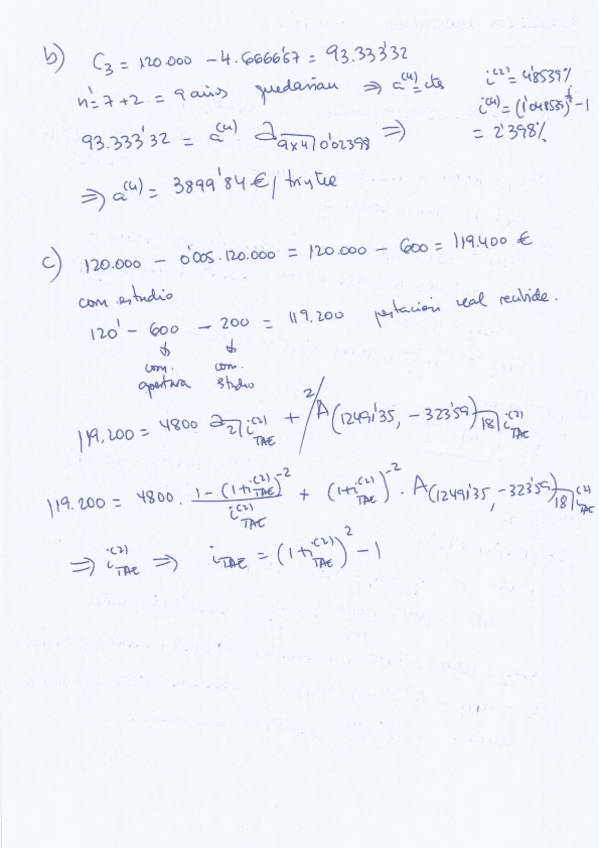 b) C₃ = 120.000 - 4.6666'67 = 93.333'32
n' = 7 + 2 = 9 años quedarían ⇒ a⁽⁴⁾ = cte
i⁽²⁾ = 4'8539%
i⁽⁴⁾ = (1'04853)  - 1
= 2'398%
93.333'32 = a⁽⁴⁾ a 9x4| 0'02398 ⇒
⇒ a⁽⁴⁾ = 3899'84 € / trimestre
c) 120.000 - 0'005 · 120.000 = 120.000 - 600 = 119.400 €
com. estudio
120' - 600 - 200 = 119.200 prestación real recibida.
↓ ↓
com. com.
apertura Studio
119.200 = 4800 a 2| i⁽²⁾TAE + ²/A(12491'35, -323'59) 18| i⁽²⁾TAE
119.200 = 4800 · (1 - (1+i⁽²⁾TAE)⁻²) / i⁽²⁾TAE + (1+i⁽²⁾TAE)⁻² · A(12491'35, -323'59) 18| i⁽²⁾TAE
⇒ i⁽²⁾TAE ⇒ iTAE = (1+i⁽²⁾TAE)² - 1